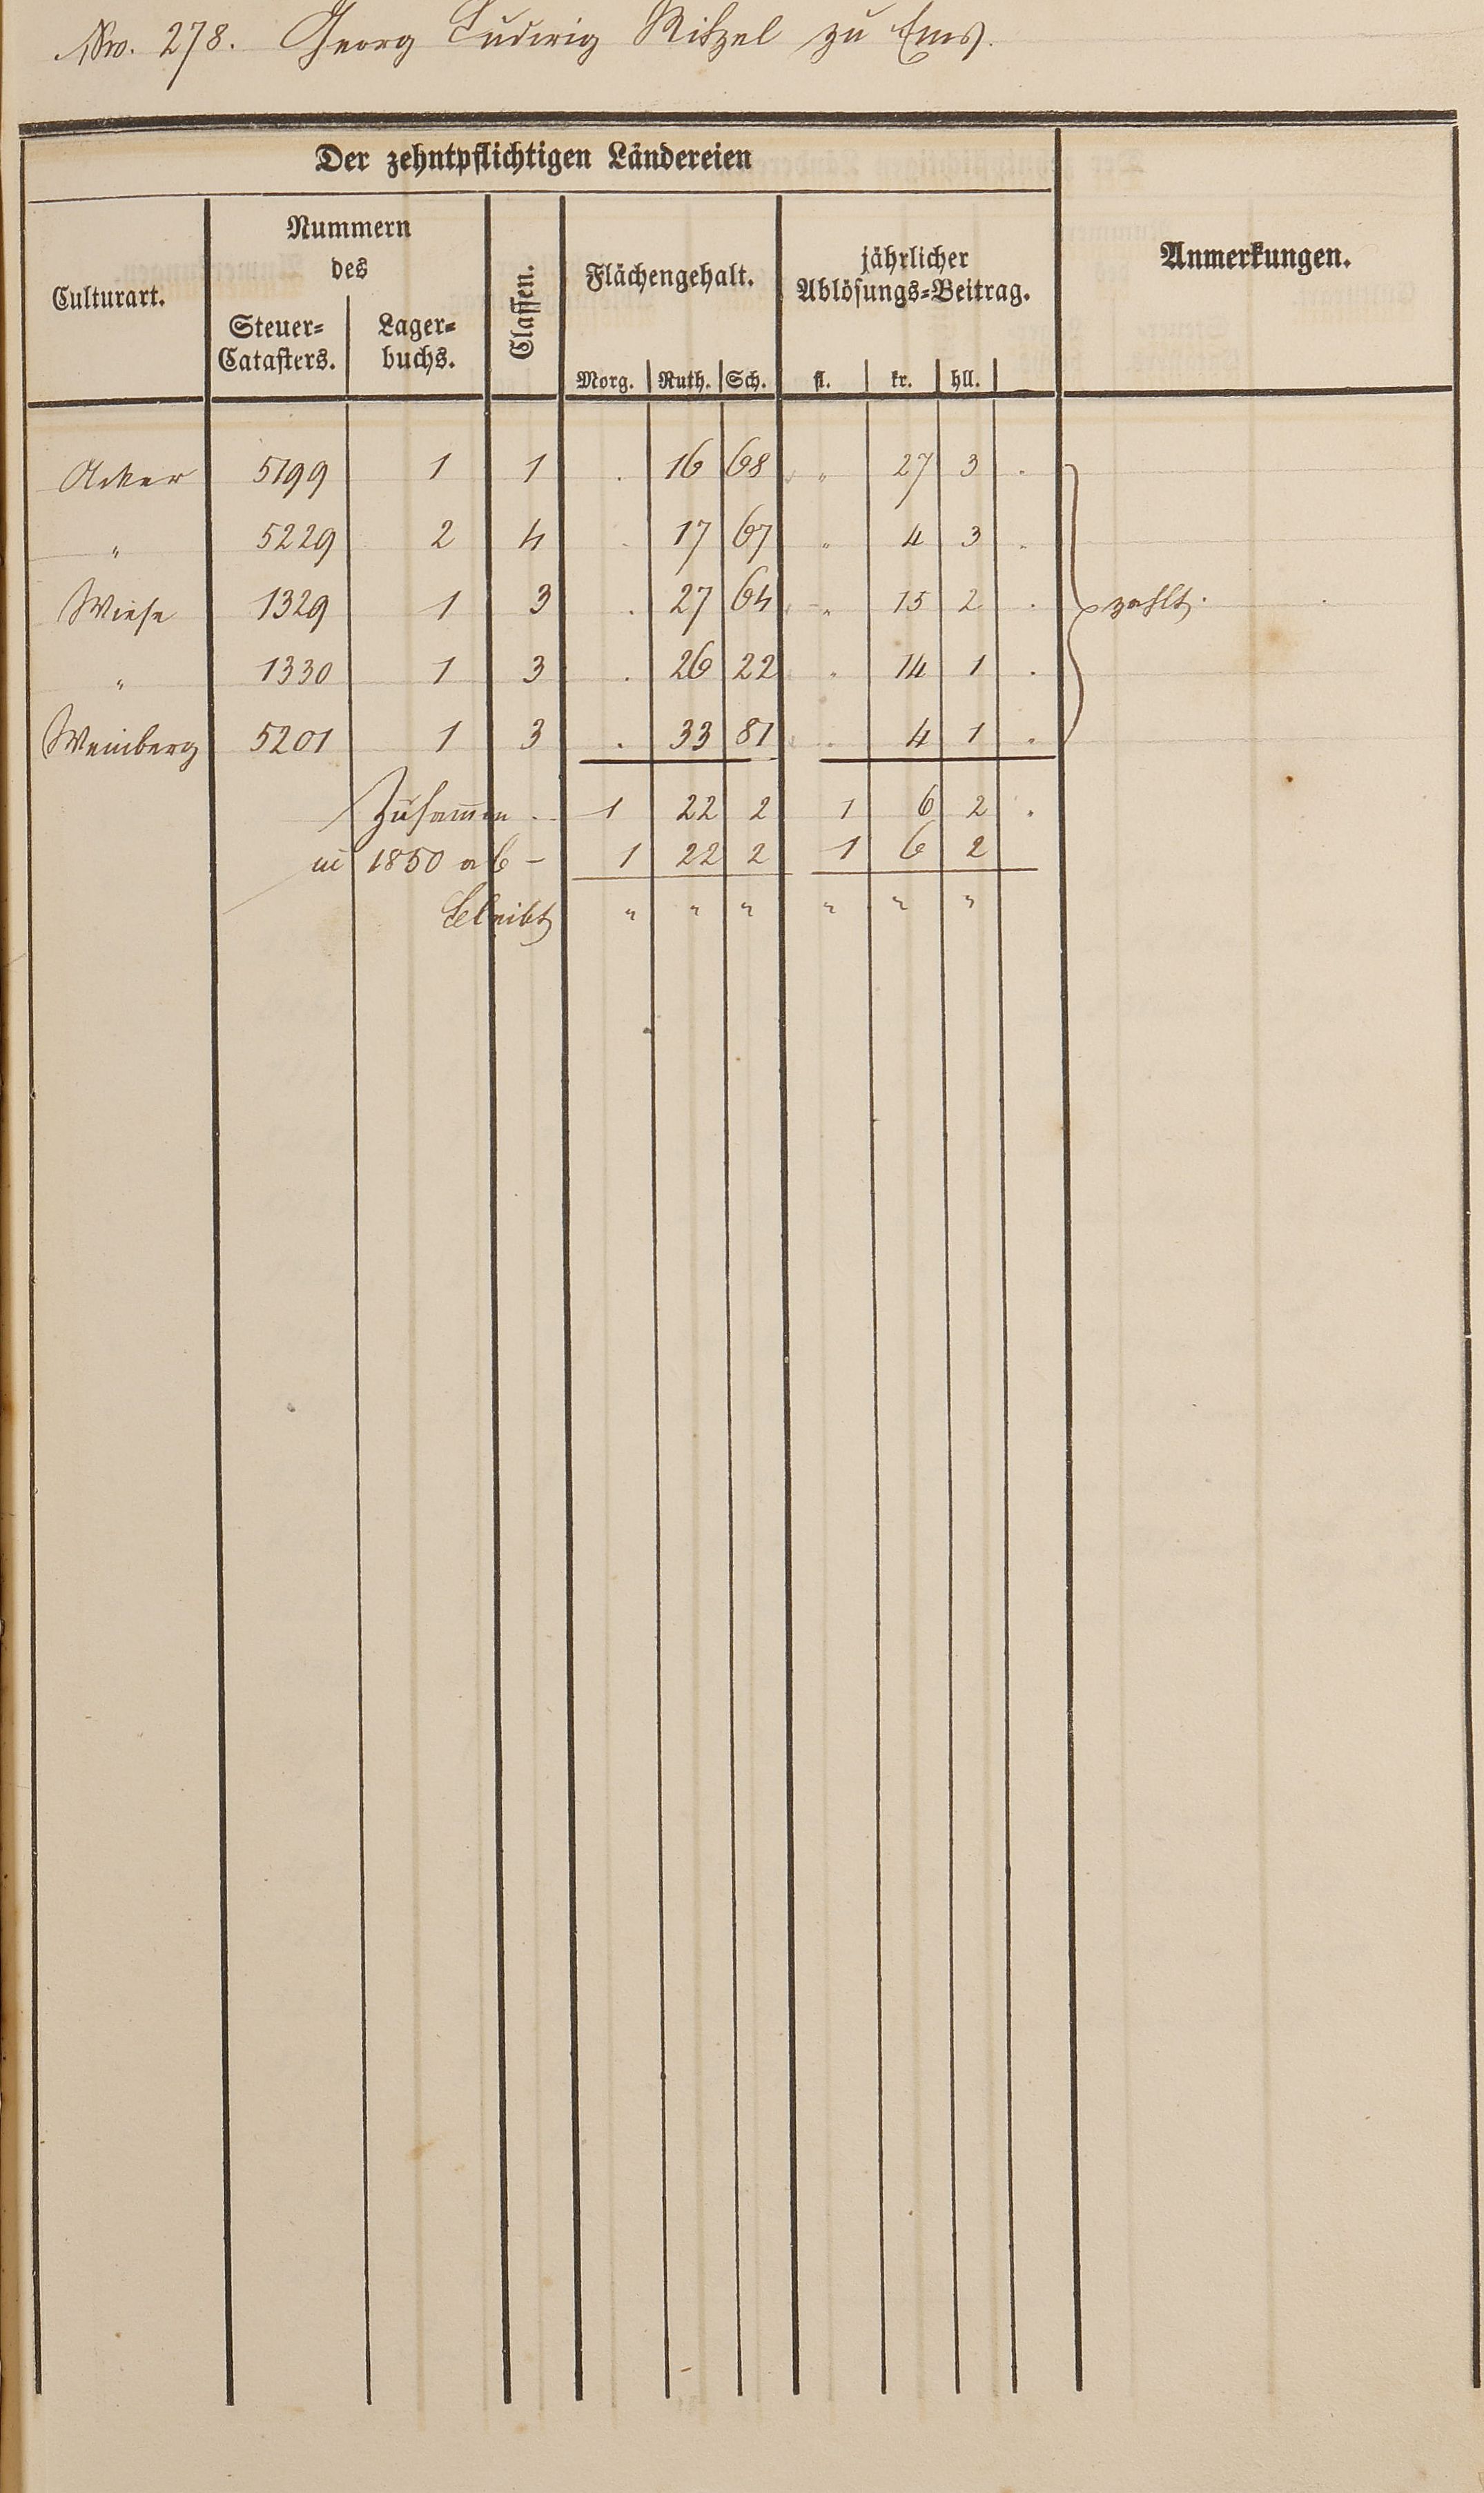 Nro. 278. Georg Ludwig Ritzel zu Ems.
Der zehntpflichtigen Ländereien
Culturart.
Nummern
des
Steuer-
Catasters.
Lager-
buchs.
Classen.
Flächengehalt.
Morg. Ruth. Sch.
jährlicher
Ablösungs-Beitrag.
fl. kr. hll.
Anmerkungen.
Acker 5199 1 1 . 16 68 „ 27 3 .
„ 5229 2 4 . 17 67 „ 4 3 .
Wiese 1329 1 3 . 27 64 „ 15 2 . zahlt.
„ 1330 1 3 . 26 22 „ 14 1 .
Weinberg 5201 1 3 . 33 81 „ 4 1 .
Zusammen . 1 22 2 1 6 2 .
in 1850 ab - 1 22 2 1 6 2
bleibt „ „ „ „ „ „